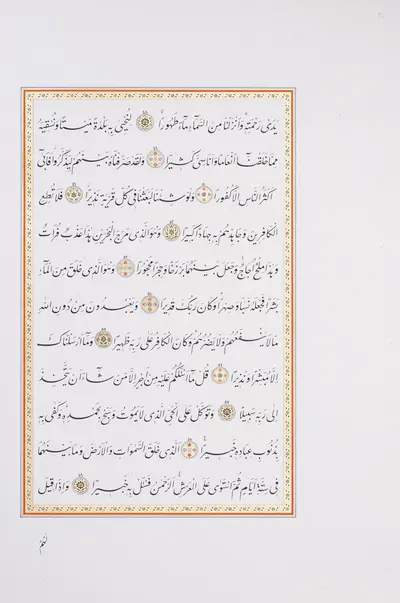 يدى رحمته وانزلنا من السماء ماء طهورا لنحيى به بلدة ميتا ونسقيه
مما خلقنا انعاما واناسى كثيرا ولقد صرفناه بينهم ليذكروا فابى
اكثر الناس الا كفورا ولو شئنا لبعثنا فى كل قرية نذيرا فلا تطع
الكافرين وجاهدهم به جهادا كبيرا وهو الذى مرج البحرين هذا عذب فرات
وهذا ملح اجاج وجعل بينهما برزخا وحجرا محجورا وهو الذى خلق من الماء
بشرا فجعله نسبا وصهرا وكان ربك قديرا ويعبدون من دون الله
ما لا ينفعهم ولا يضرهم وكان الكافر على ربه ظهيرا وما ارسلناك
الا مبشرا ونذيرا قل ما اسئلكم عليه من اجر الا من شاء ان يتخذ
الى ربه سبيلا وتوكل على الحى الذى لا يموت وسبح بحمده وكفى به
بذنوب عباده خبيرا الذى خلق السموات والارض وما بينهما
فى ستة ايام ثم استوى على العرش الرحمن فسئل به خبيرا واذا قيل
لهم